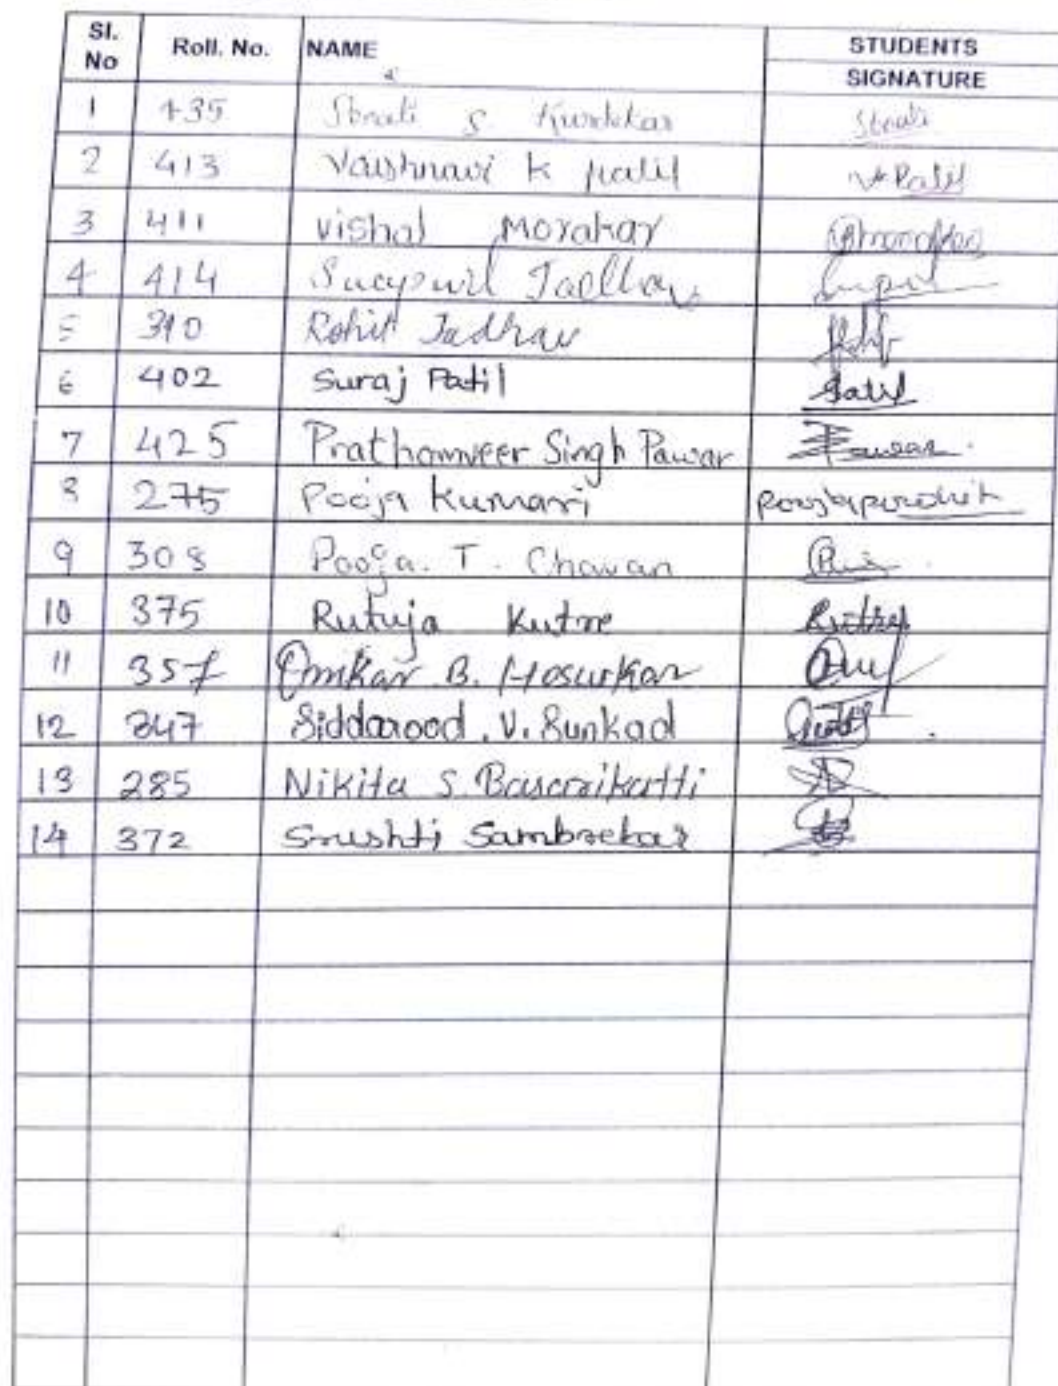 Sl. No Roll. No. NAME STUDENTS SIGNATURE
1 435 S Kurdekar
2 413 Vaishnavi k patil Patil
3 411 vishal Morakar
4 414 Jadhav
5 Rohit Jadhav
6 402 Suraj Patil Patil
7 425 Prathamveer Singh Pawar Pawar
8 275 Pooja Kumari Poojapurohit
9 308 Pooja. T. Chavan
10 375 Rutuja Kutre
11 357 Omkar B. Hosurkar
12 347 Siddarood . V. Sunkad
13 285 Nikita S. Basarikatti
14 372 Srushti Sambrekar